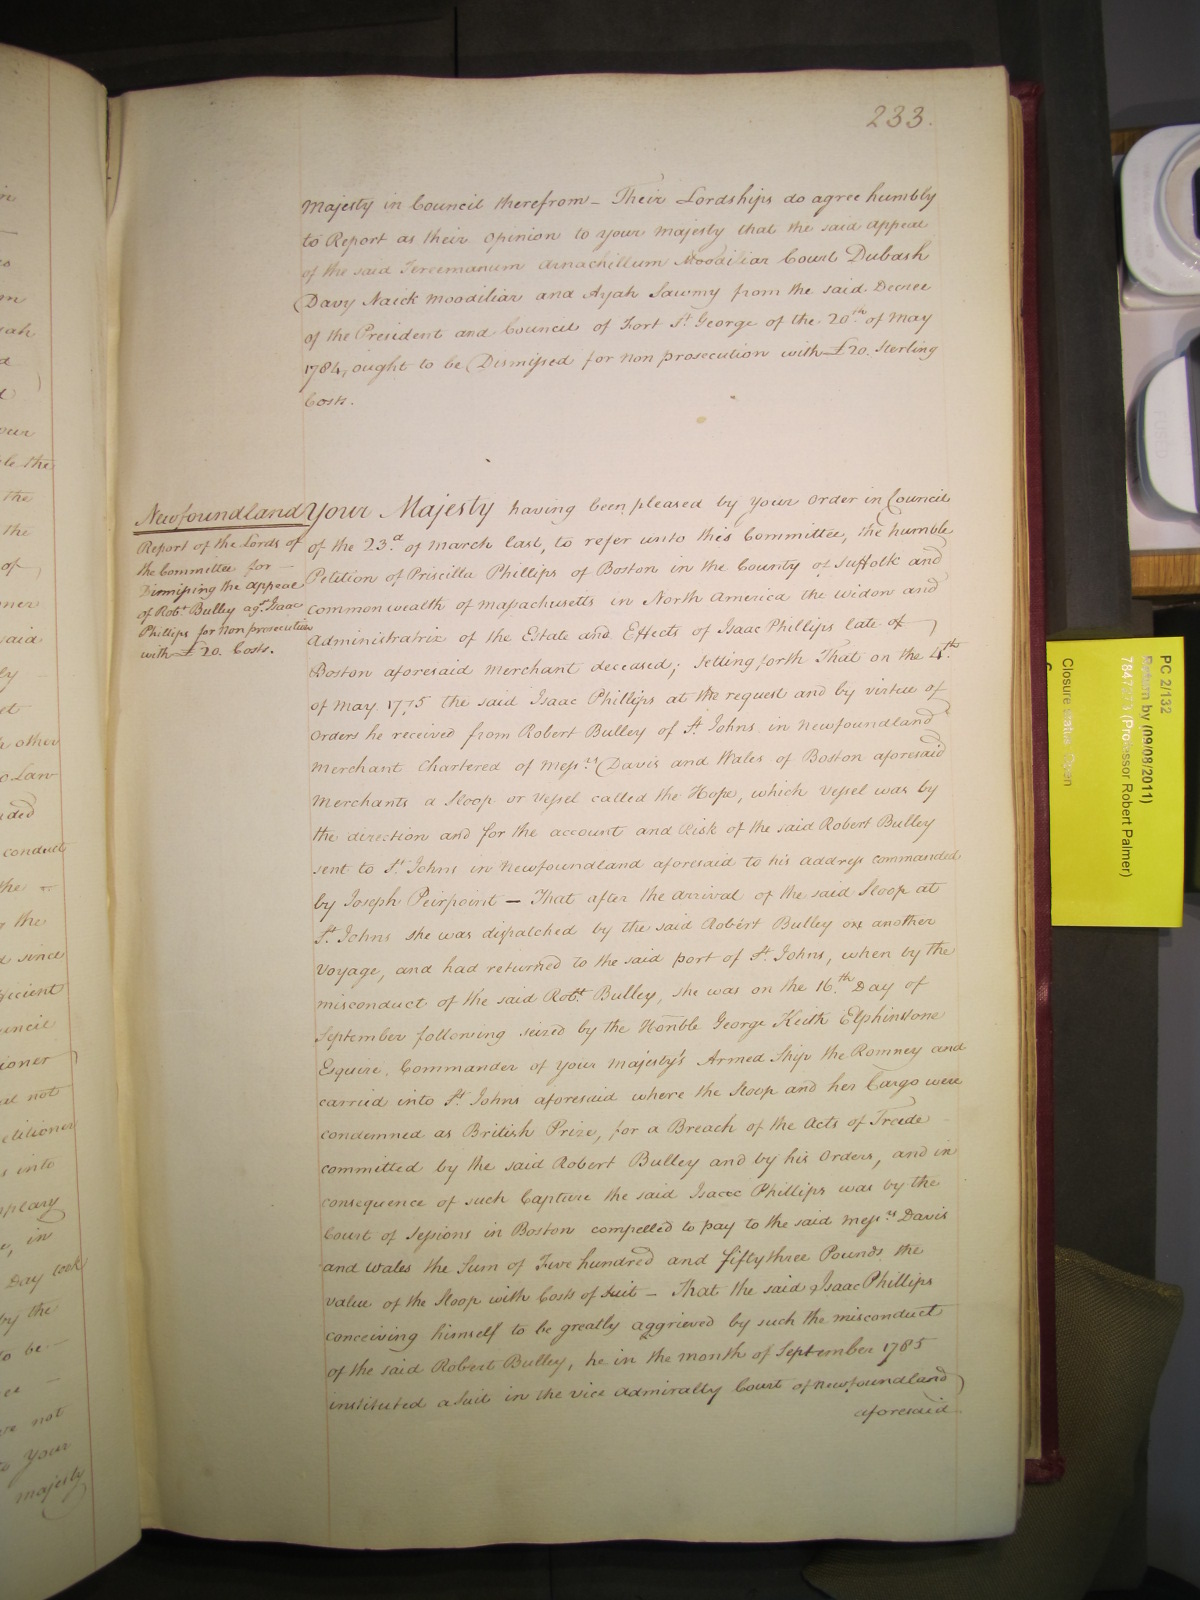 233.
Majesty in Council therefrom – Their Lordships do agree humbly
to Report as their Opinion to your Majesty that the said Appeal
of the said Arnachillum Moodiliar Court Dubash
Davy Naick Moodiliar and Ayah Sawmy from the said Decree
of the President and Council of Fort St. George of the 20th. of May
1784, ought to be Dismissed for non prosecution with £20. Sterling
Costs.
Newfoundland
Report of the Lords of
the Committee for
Dismissing the Appeal
of Robt. Bulley agt. Isaac
Phillips for non prosecution
with £20. Costs.
Your Majesty having been pleased by your Order in Council
of the 23.d of March last, to refer unto this Committee, the humble
Petition of Priscilla Phillips of Boston in the County of Suffolk and
Commonwealth of Massachusetts in North America the widow and
Administratrix of the Estate and Effects of Isaac Phillips late of
Boston aforesaid Merchant deceased; setting forth That on the 4th.
of May 1775 the said Isaac Phillips at the request and by virtue of
Orders he received from Robert Bulley of St. Johns in Newfoundland
Merchant Chartered of Messrs. Davis and Wales of Boston aforesaid
Merchants a Sloop or Vessel called the Hope, which Vessel was by
the direction and for the account and Risk of the said Robert Bulley
sent to St. Johns in Newfoundland aforesaid to his address commanded
by Joseph Peirpoint – That after the arrival of the said Sloop at
St. Johns she was dispatched by the said Robert Bulley on another
Voyage, and had returned to the said port of St. Johns, when by the
misconduct of the said Robt. Bulley, she was on the 16.th Day of
September following seized by the Honble George Keith Elphinstone
Esquire, Commander of your Majesty's Armed Ship the Romney and
carried into St. Johns aforesaid where the Sloop and her Cargo were
condemned as British Prize, for a Breach of the Acts of Trade
committed by the said Robert Bulley and by his Orders, and in
consequence of such Capture the said Isaac Phillips was by the
Court of Sessions in Boston compelled to pay to the said Messrs. Davis
and Wales the Sum of Five hundred and fifty three Pounds the
value of the Sloop with Costs of Suit – That the said Isaac Phillips
conceiving himself to be greatly aggrieved by such the misconduct
of the said Robert Bulley, he in the month of September 1785
instituted a Suit in the Vice Admiralty Court of Newfoundland
aforesaid
PC 2/132
Return by (09/08/2011)
(Professor Robert Palmer)
Closure status Open